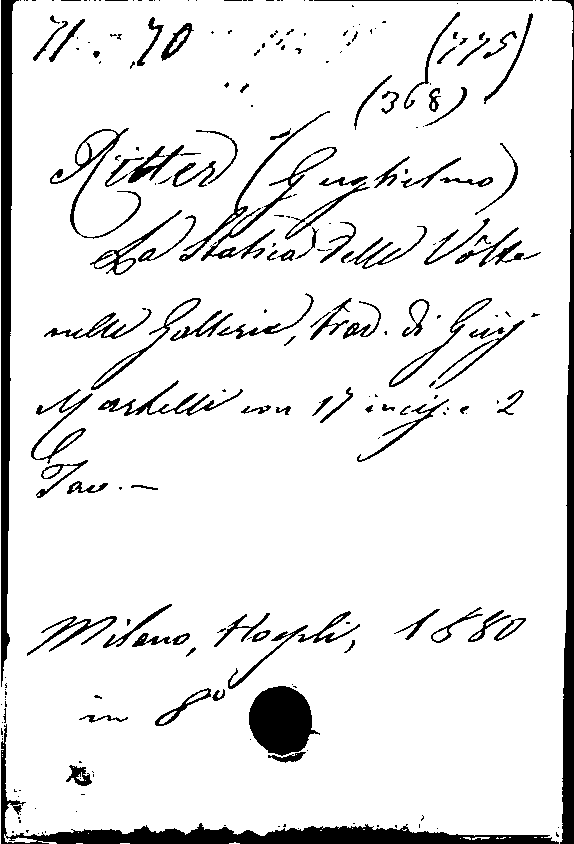 71 70 (775)
(368)
Ritter (Guglielmo)
La Statica delle Vôlte
nelle Gallerie, trad. di
Martelli con 17 incis. e 2
Tav. —
Milano, Hoepli, 1880
in 8º